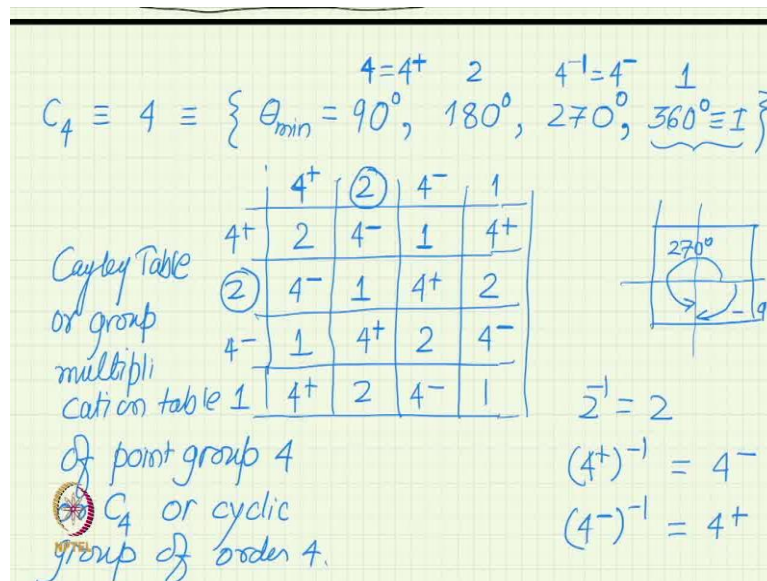 4=4⁺ 2 4⁻¹=4⁻ 1
C₄ ≡ 4 ≡ { θmin = 90°, 180°, 270°, 360°≡I }
4⁺ 2 4⁻ 1
4⁺ 2 4⁻ 1 4⁺
2 4⁻ 1 4⁺ 2
4⁻ 1 4⁺ 2 4⁻
1 4⁺ 2 4⁻ 1
Cayley Table
or group
multipli
cation table
of point group 4
C₄ or cyclic
group of order 4.
270°
2⁻¹ = 2
(4⁺)⁻¹ = 4⁻
(4⁻)⁻¹ = 4⁺
NPTEL